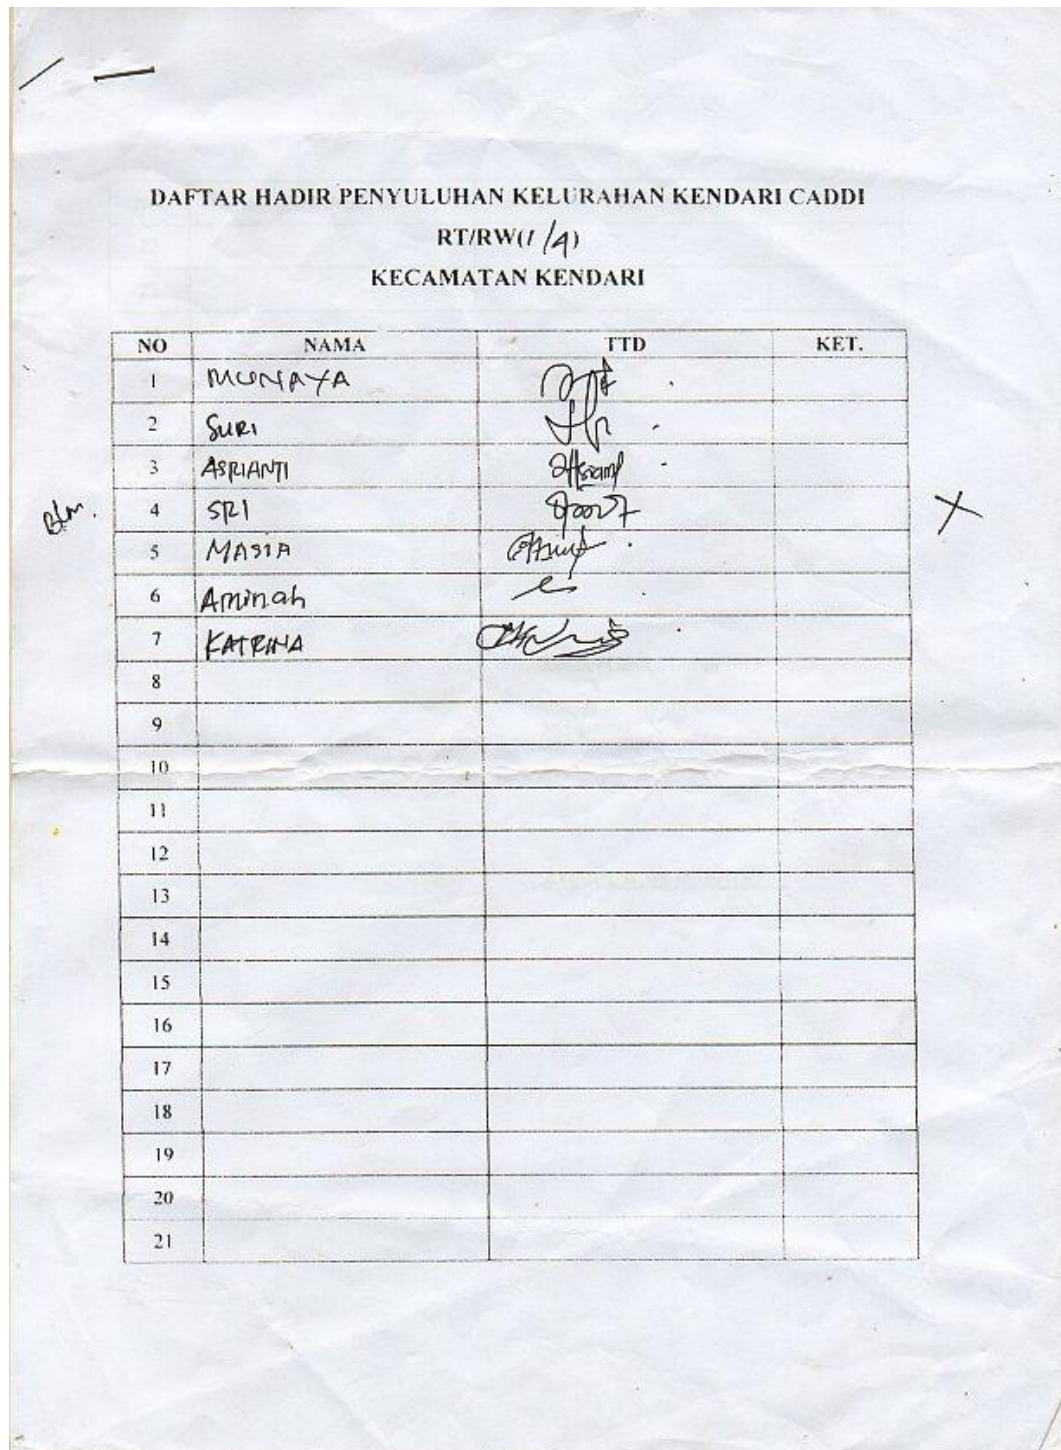 DAFTAR HADIR PENYULUHAN KELURAHAN KENDARI CADDI
RT/RW(1/4)
KECAMATAN KENDARI
NO NAMA TTD KET.
1 MUNAYA
2 SURI
3 ASRIANTI
Blm. 4 SRI X
5 MASIA
6 Aminah
7 KATRINA
8
9
10
11
12
13
14
15
16
17
18
19
20
21